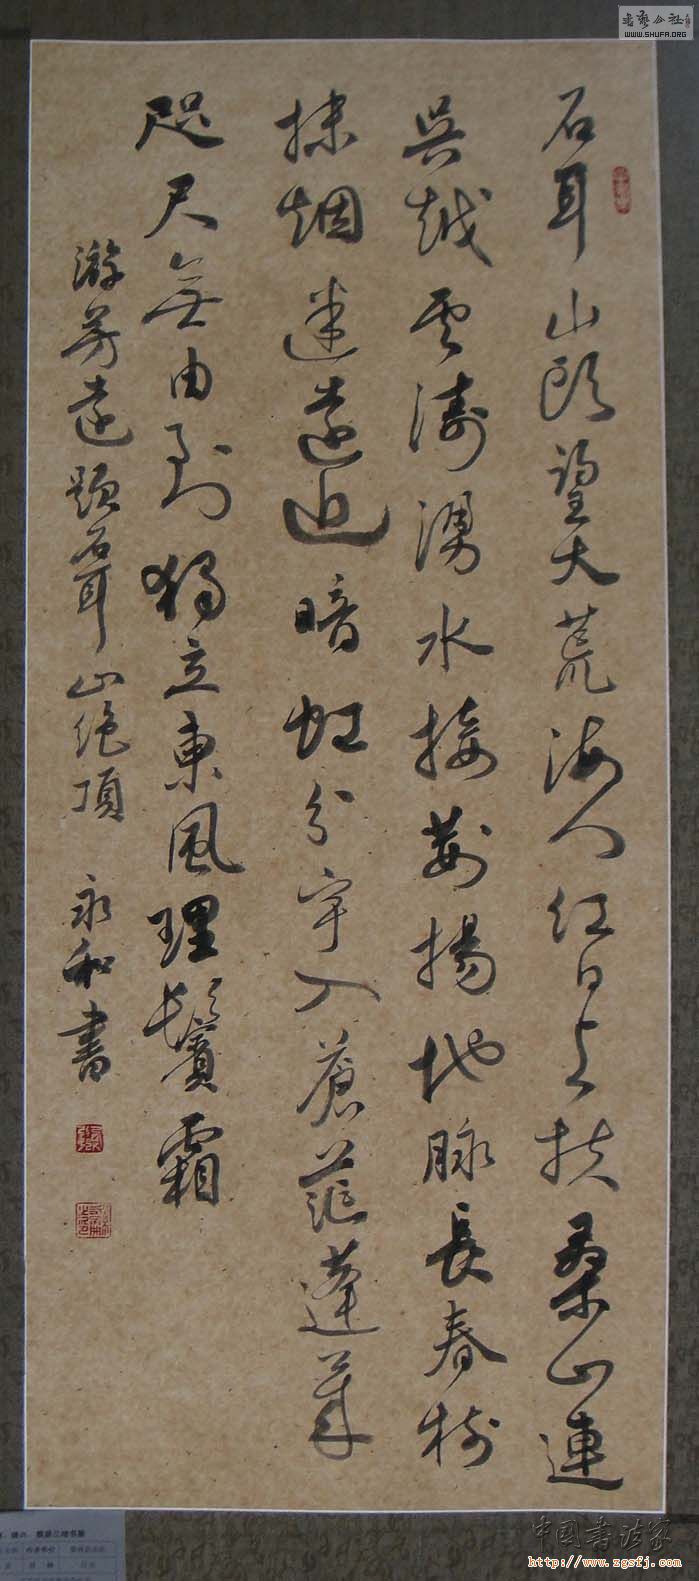 石耳山頭望大荒海门红日上扶桑山連
吳越雲濤湧水接荆揚地脉長春樹
抹烟迷遠近暗虹分宇入蒼茫蓬萊
咫尺無由到獨立東風理鬢霜
游芳遠題石耳山绝頂 永和書
書藝公社
WWW.SHUFA.ORG
中国书法家
http://www.zgsfj.com